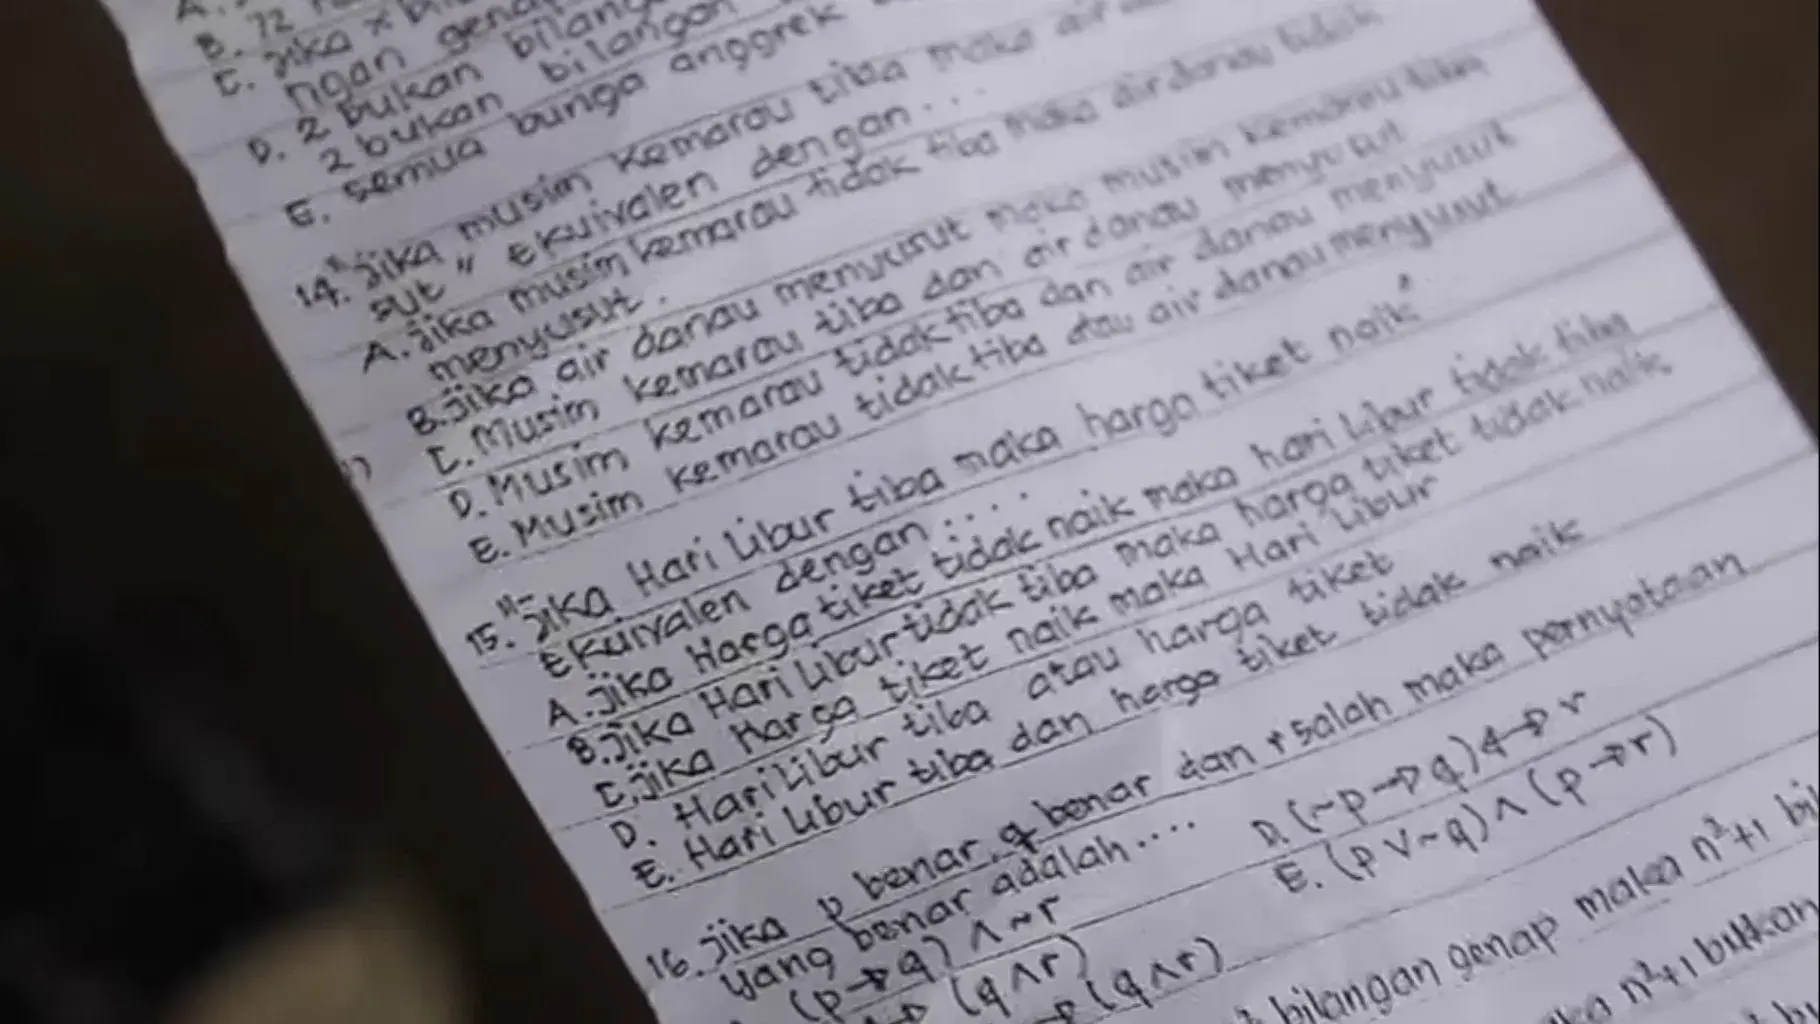 A.
B. 72
C. Jika x
ngan genap
D. 2 bukan bilang
2 bukan bilangan
E. Semua bunga anggrek
14. "Jika musim kemarau tiba maka air
sut" Ekuivalen dengan ...
A. Jika musim kemarau tidak tiba maka air danau tidak
menyusut.
B. Jika air danau menyusut maka musim kemarau tiba
C. Musim kemarau tiba dan air danau menyusut
D. Musim kemarau tidak tiba dan air danau menyusut
E. Musim kemarau tidak tiba atau air danau menyusut
15. "Jika Hari Libur tiba maka harga tiket naik"
Ekuivalen dengan ....
A. Jika Harga tiket tidak naik maka hari Libur tidak tiba
B. Jika Hari Libur tidak tiba maka harga tiket tidak naik
C. Jika Harga tiket naik maka Hari Libur
D. Hari Libur tiba atau harga tiket
E. Hari Libur tiba dan harga tiket tidak naik
16. Jika p benar, q benar dan r salah maka pernyataan
yang benar adalah ....
(p→q) ∧ ~r
D. (~p→q) ↔ r
(q∧r)
E. (p∨~q) ∧ (p→r)
→(q∧r)
bilangan genap maka n²+1 bil
n²+1 bukan